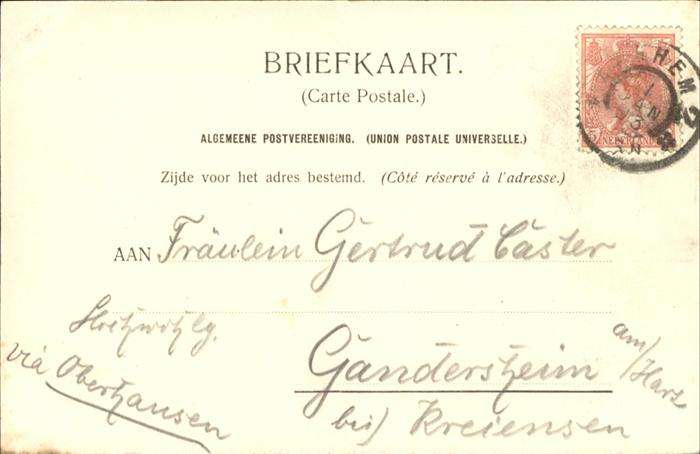 BRIEFKAART.
(Carte Postale.)
ALGEMEENE POSTVEREENIGING. (UNION POSTALE UNIVERSELLE.)
Zijde voor het adres bestemd. (Côté réservé à l'adresse.)
AAN Fräulein Gertrud Cäster
Gandersheim am/Harz
bei Kreiensen
via Oberhausen
NEDERLAND
HEM 2
1 JAN